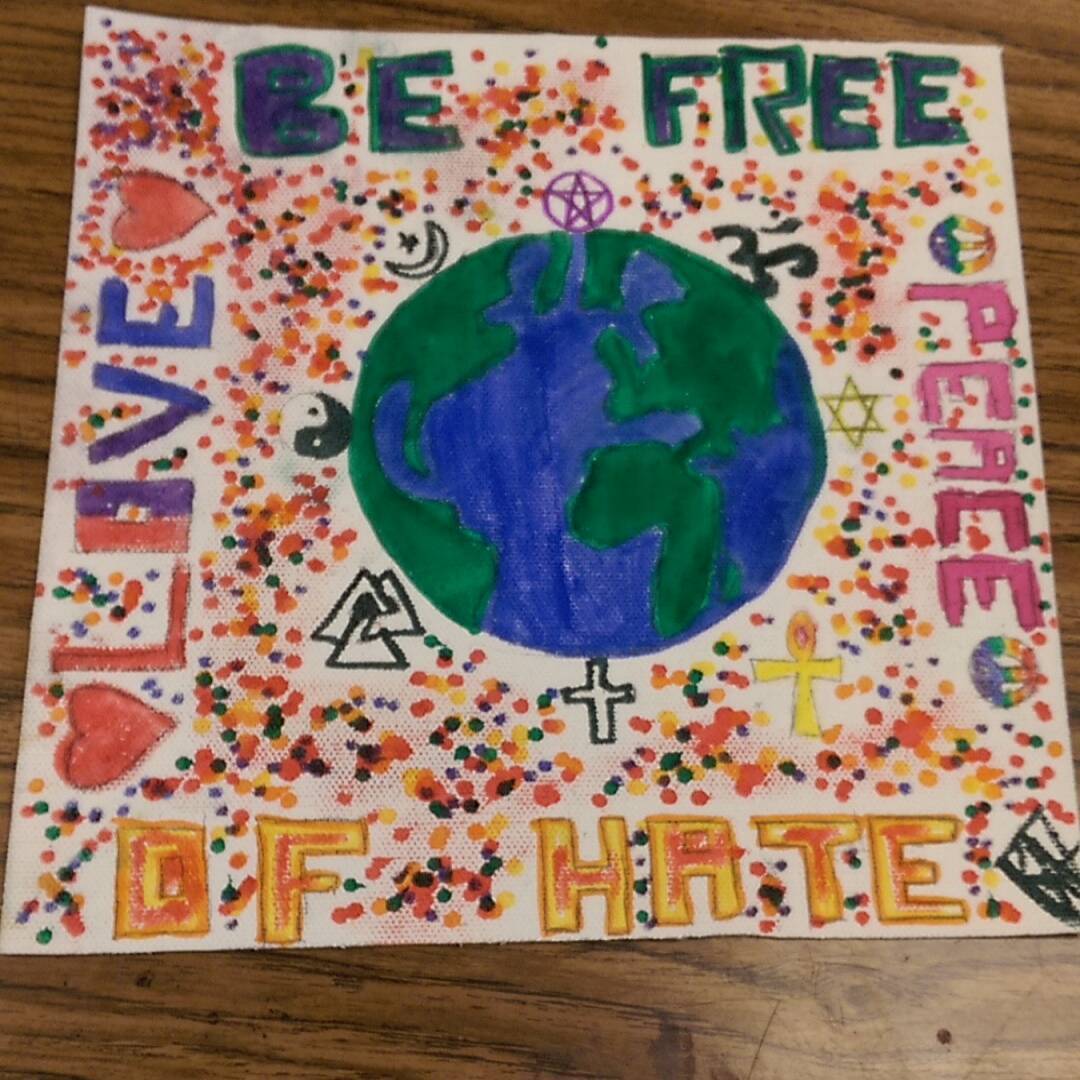 BE FREE
LOVE
PEACE
OF HATE